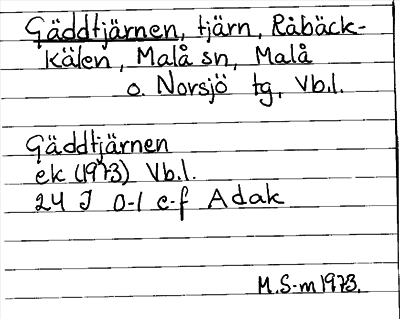 Gäddtjärnen, tjärn, Råbäck-
kälen, Malå sn, Malå
o. Norsjö tg, Vb.l.
Gäddtjärnen
ek (1973) Vb.l.
24 J 0-1 e-f Adak
M.S-m 1973.